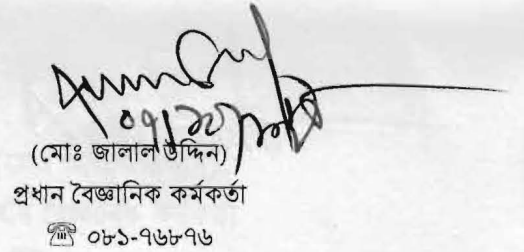 (মোঃ জালাল উদ্দিন)
প্রধান বৈজ্ঞানিক কর্মকর্তা
☎ ০৮১-৭৬৮৭৬